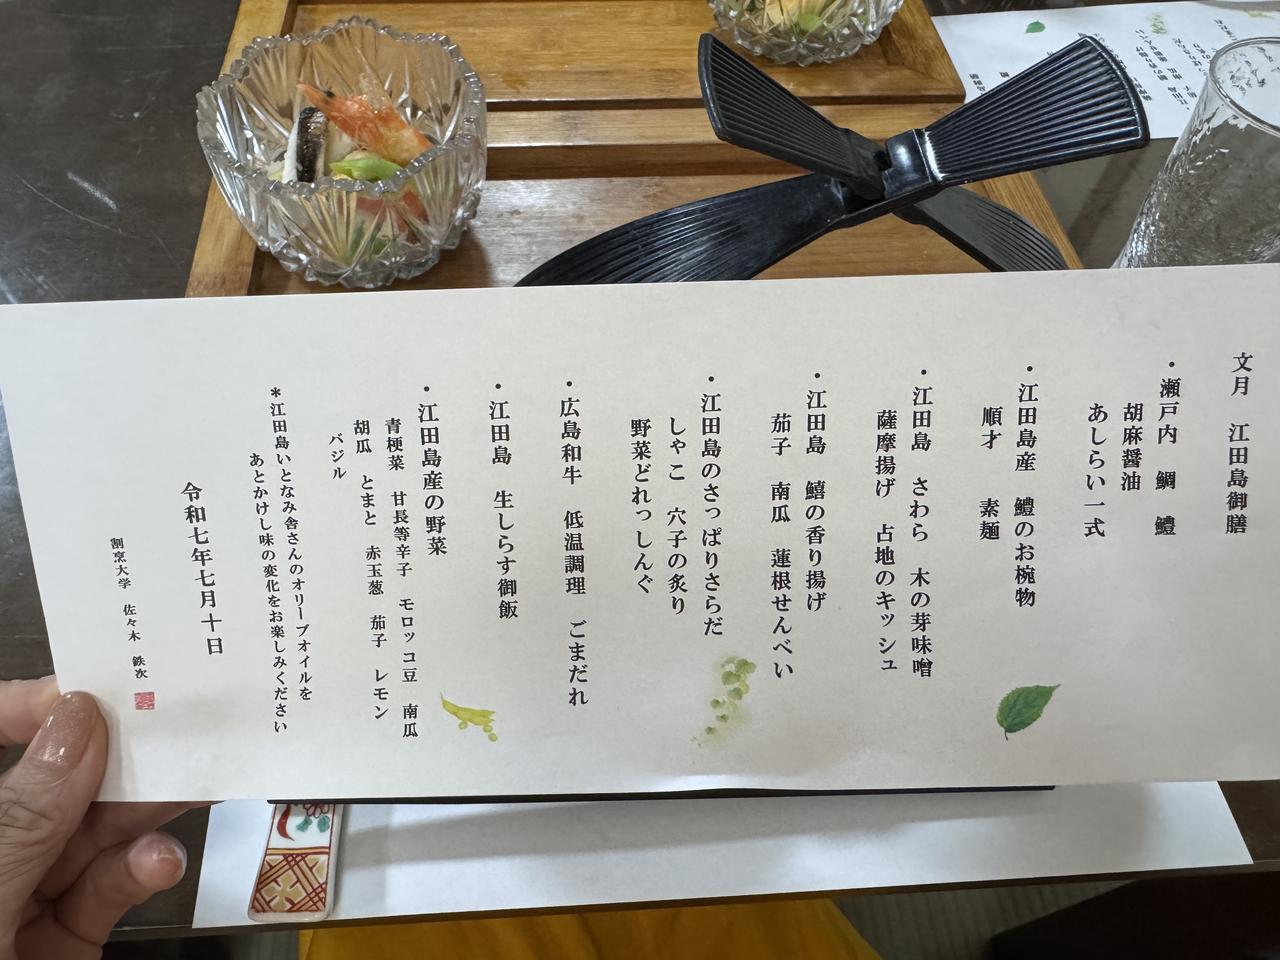 文月　江田島御膳
・瀬戸内　鯛　鱧
胡麻醤油
あしらい一式
・江田島産　鱧のお椀物
順才　素麺
・江田島　さわら　木の芽味噌
薩摩揚げ　占地のキッシュ
・江田島　鱚の香り揚げ
茄子　南瓜　蓮根せんべい
・江田島のさっぱりさらだ
しゃこ　穴子の炙り
野菜どれっしんぐ
・広島和牛　低温調理　ごまだれ
・江田島　生しらす御飯
・江田島産の野菜
青梗菜　甘長等辛子　モロッコ豆　南瓜
胡瓜　とまと　赤玉葱　茄子　レモン
バジル
＊江田島いとなみ舎さんのオリーブオイルを
あとかけし味の変化をお楽しみください
令和七年七月十日
割烹大学　佐々木　鉄次